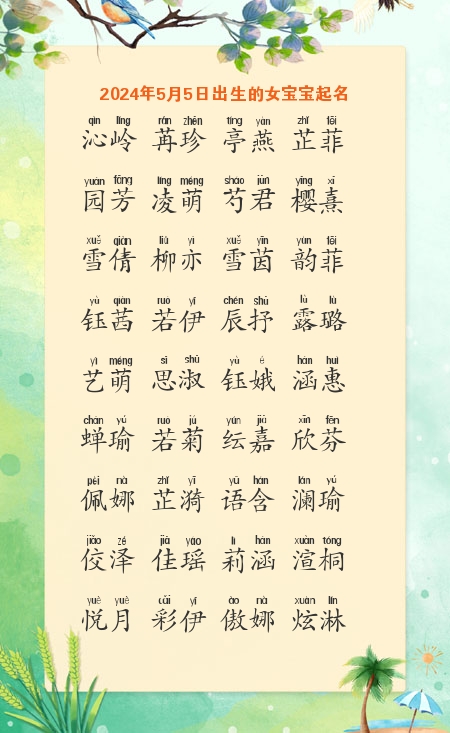 2024年5月5日出生的女宝宝起名
qìn lǐng rǎn zhēn tíng yàn zhǐ fēi
沁岭 苒珍 亭燕 芷菲
yuán fāng líng méng sháo jūn yīng xī
园芳 凌萌 芍君 樱熹
xuě qiàn liǔ yì xuě yīn yùn fēi
雪倩 柳亦 雪茵 韵菲
yù qiàn ruò yī chén shū lù lù
钰茜 若伊 辰抒 露璐
yì méng sī shū yù é hán huì
艺萌 思淑 钰娥 涵惠
chán yú ruò jú yún jiā xīn fēn
蝉瑜 若菊 纭嘉 欣芬
pèi nà zhǐ yī yǔ hán lán yú
佩娜 芷漪 语含 澜瑜
jiǎo zé jiā yáo lì hán xuàn tóng
佼泽 佳瑶 莉涵 渲桐
yuè yuè cǎi yī ào nà xuàn lín
悦月 彩伊 傲娜 炫淋